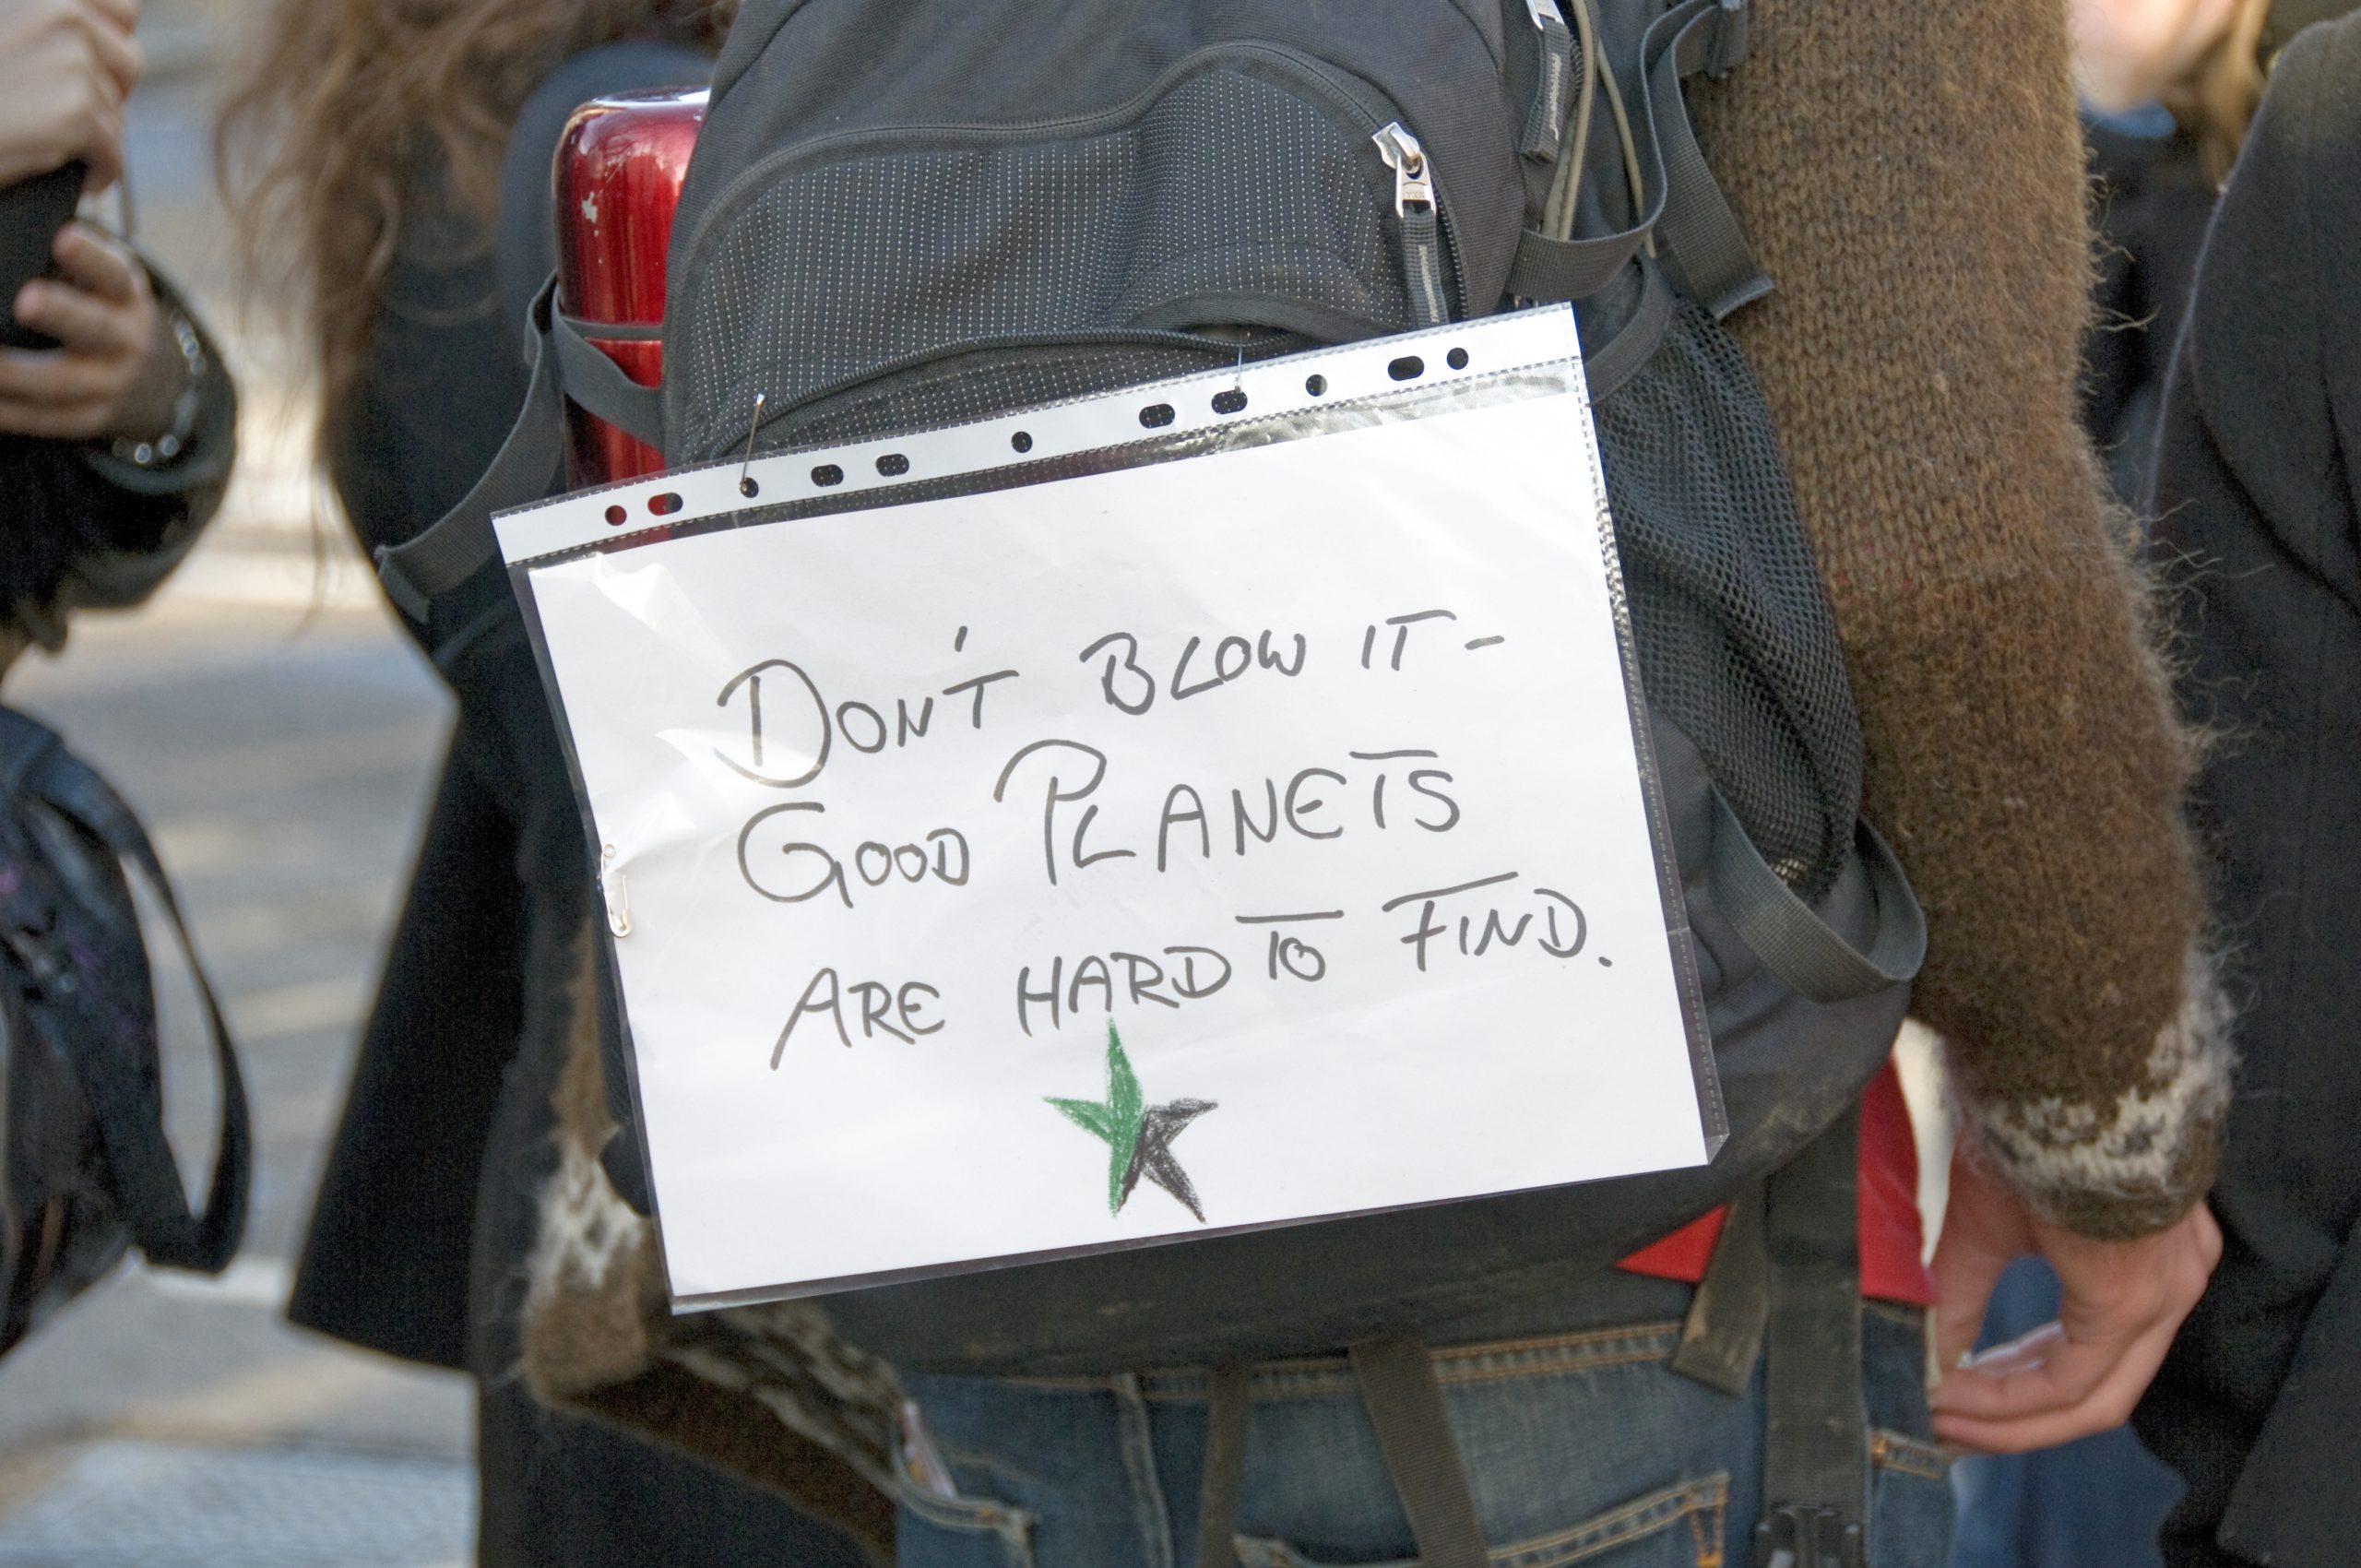 DON'T BLOW IT -
GOOD PLANETS
ARE HARD TO FIND.